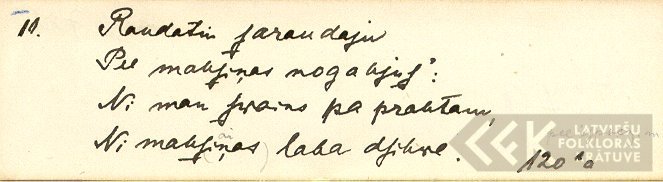 11. Raudatin ſaraudaju
Pee mahſiņas nogahjuſ':
Ni man ſwains pa prahtam,
Ni mahſiņas (ai) laba dſihwe.
120 1a
LATVIEŠU
FOLKLORAS
KRĀTUVE